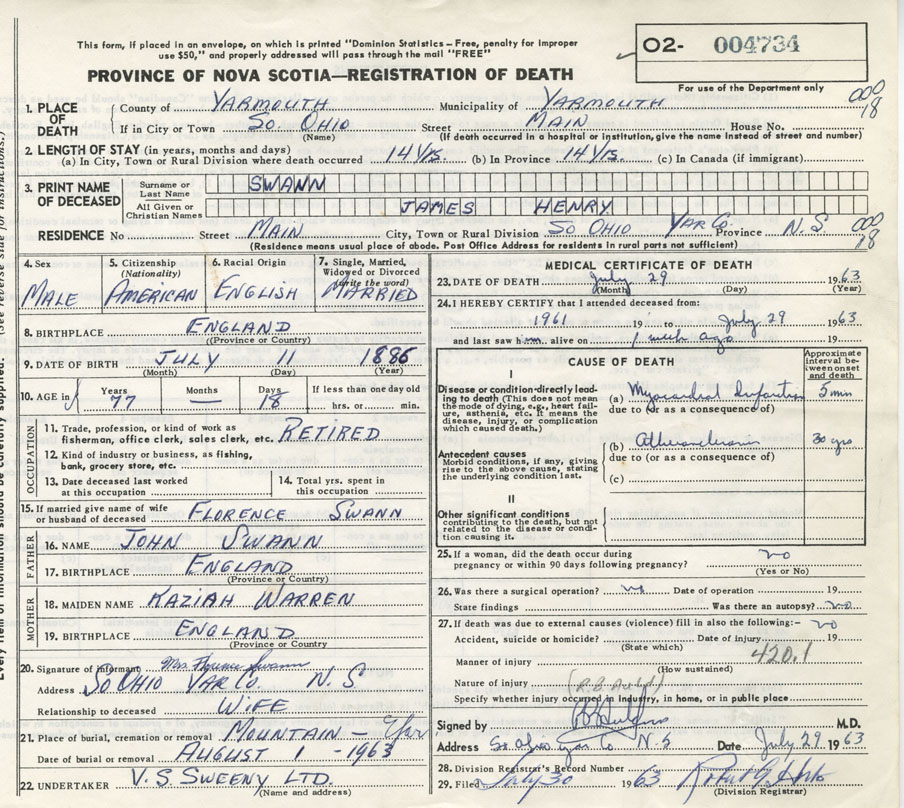 This form, if placed in an envelope, on which is printed "Dominion Statistics – Free, penalty for improper
use $50," and properly addressed will pass through the mail "FREE"
O2- 004734
PROVINCE OF NOVA SCOTIA—REGISTRATION OF DEATH
For use of the Department only
1. PLACE OF DEATH
County of YARMOUTH Municipality of YARMOUTH 000
If in City or Town So. OHIO Street MAIN House No. 18
(Name) (If death occurred in a hospital or institution, give the name instead of street and number)
2. LENGTH OF STAY (in years, months and days)
(a) In City, Town or Rural Division where death occurred 14 Yrs. (b) In Province 14 Yrs. (c) In Canada (if immigrant)
3. PRINT NAME OF DECEASED
Surname or Last Name SWANN
All Given or Christian Names JAMES HENRY
RESIDENCE No Street MAIN City, Town or Rural Division So OHIO YAR Co. Province N. S 000
(Residence means usual place of abode. Post Office Address for residents in rural parts not sufficient) 18
4. Sex MALE
5. Citizenship (Nationality) AMERICAN
6. Racial Origin ENGLISH
7. Single, Married, Widowed or Divorced (write the word) MARRIED
8. BIRTHPLACE ENGLAND
(Province or Country)
9. DATE OF BIRTH JULY 11 1886
(Month) (Day) (Year)
10. AGE in Years 77 Months — Days 18 If less than one day old hrs. or min.
OCCUPATION
11. Trade, profession, or kind of work as fisherman, office clerk, sales clerk, etc. RETIRED
12. Kind of industry or business, as fishing, bank, grocery store, etc.
13. Date deceased last worked at this occupation
14. Total yrs. spent in this occupation
15. If married give name of wife or husband of deceased FLORENCE SWANN
FATHER
16. NAME JOHN SWANN
17. BIRTHPLACE ENGLAND
(Province or Country)
MOTHER
18. MAIDEN NAME KAZIAH WARREN
19. BIRTHPLACE ENGLAND
(Province or Country
20. Signature of Informant Mrs. Florence Swann
Address So OHIO YAR Co. N. S
Relationship to deceased WIFE
21. Place of burial, cremation or removal MOUNTAIN – Yar
Date of burial or removal AUGUST 1 -1963
22. UNDERTAKER V. S. SWEENY LTD.
(Name and address)
MEDICAL CERTIFICATE OF DEATH
23. DATE OF DEATH July 29 1963
(Month) (Day) (Year)
24. I HEREBY CERTIFY that I attended deceased from:
1961 19 to July 29 1963
and last saw him alive on 1 week ago 19
CAUSE OF DEATH
Approximate interval between onset and death
I
Disease or condition directly leading to death (This does not mean the mode of dying, e.g., heart failure, asthenia, etc. It means the disease, injury, or complication which caused death.)
(a) Myocardial Infarction 5 min
due to (or as a consequence of)
Antecedent causes
Morbid conditions, if any, giving rise to the above cause, stating the underlying condition last.
(b) 30 yrs
due to (or as a consequence of)
(c)
II
Other significant conditions
contributing to the death, but not related to the disease or condition causing it.
25. If a woman, did the death occur during pregnancy or within 90 days following pregnancy? no
(Yes or No)
26. Was there a surgical operation? no Date of operation 19
State findings Was there an autopsy? no
27. If death was due to external causes (violence) fill in also the following:– no
Accident, suicide or homicide? Date of injury 19
(State which) 420.1
Manner of injury
(How sustained)
Nature of injury
Specify whether injury occurred in Industry, in home, or in public place
Signed by M.D.
Address So. Ohio Yar Co N.S Date July 29 1963
28. Division Registrar's Record Number
29. Filed July 30 1963
(Division Registrar)